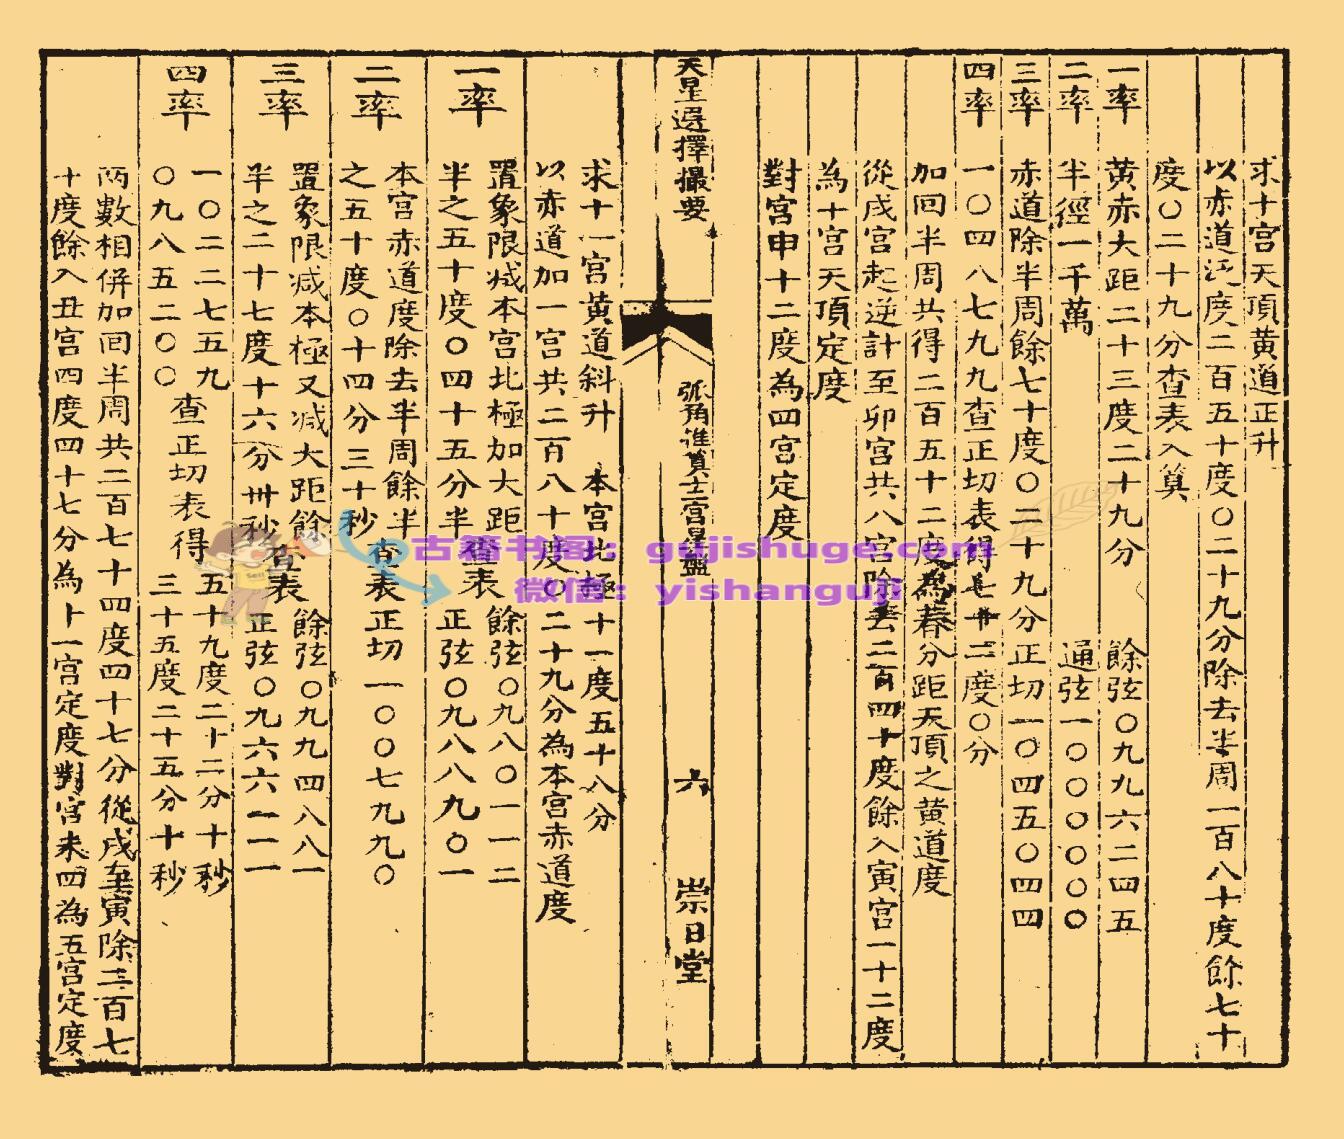 求十宮天頂黃道正升
以赤道江度二百五十度〇二十九分除去半周一百八十度餘七十
度〇二十九分查表入算
一率 黃赤大距二十三度二十九分 餘弦〇九九六二四五
二率 半徑一千萬 通弦一〇〇〇〇〇〇
三率 赤道除半周餘七十度〇二十九分正切一〇四五〇四四
四率 一〇四八七九九查正切表得七十二度〇分
加回半周共得二百五十二度為春分距天頂之黃道度
從戌宮起逆計至卯宮共八宮除去二百四十度餘入寅宮一十二度
為十宮天頂定度
對宮申十二度為四宮定度
天星選擇撮要
弧角進算十二宮星盤
六
崇日堂
求十一宮黃道斜升 本宮北極十一度五十八分
以赤道加一宮共二百八十度〇二十九分為本宮赤道度
一率 置象限減本宮北極加大距 餘弦〇九八〇一一二
半之五十度〇四十五分半 查表 正弦〇九八八九〇一
二率 本宮赤道度除去半周餘半
之五十度〇十四分三十秒 查表正切一〇〇七九九〇
三率 置象限減本極又減大距餘 餘弦〇九九四八八一
半之二十七度十六分卅秒 查表 正弦〇九六六一一一
四率 一〇二二七五九 五十九度二十二分十秒
〇九八五二〇〇 查正切表得 三十五度二十五分十秒
兩數相併加回半周共二百七十四度四十七分從戌至寅除二百七
十度餘入丑宮四度四十七分為十一宮定度對宮未四為五宮定度
古籍书阁：gujishuge.com
微信：yishanguji